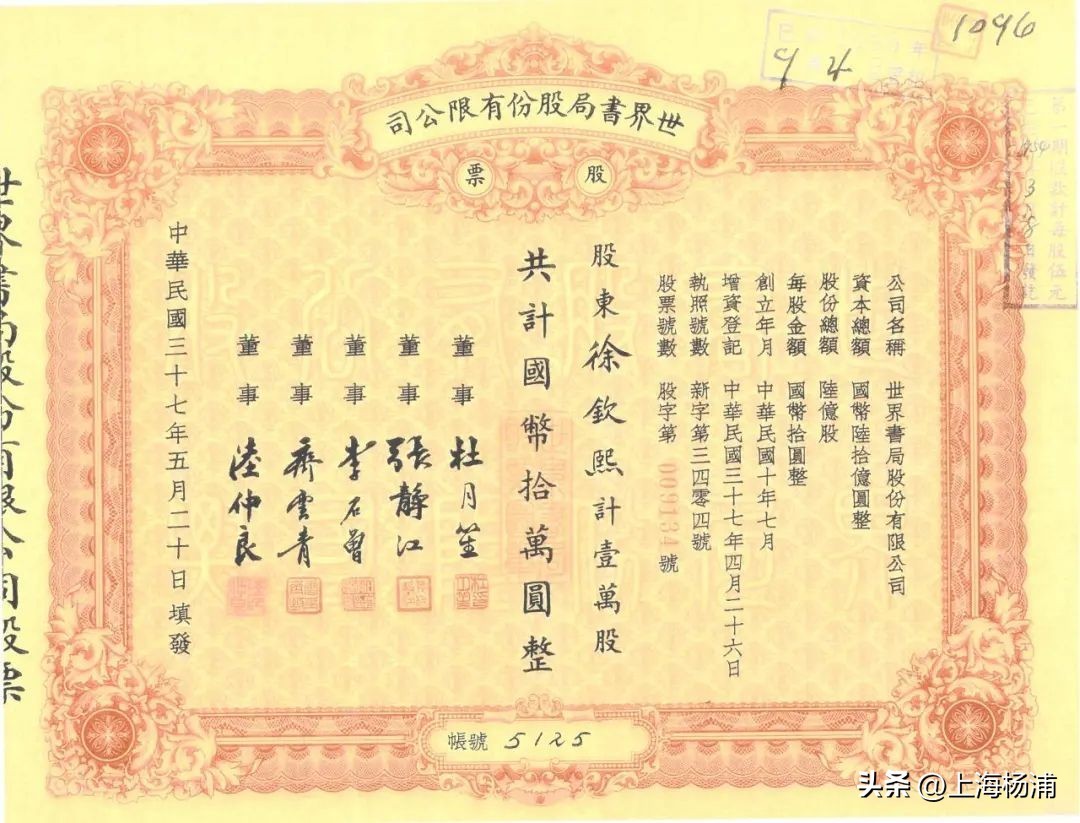 世界書局股份有限公司
股票
公司名稱 世界書局股份有限公司
資本總額 國幣陸拾億圓整
股份總額 陸億股
每股金額 國幣拾圓整
創立年月 中華民國十年七月
增資登記 中華民國三十七年四月二十六日
執照號數 新字第三四零四號
股票號數 股字第 009134 號
股東徐欽熙計壹萬股
共計國幣拾萬圓整
董事 杜月笙
董事 張靜江
董事 李石曾
董事 齊雲青
董事 陸仲良
中華民國三十七年五月二十日填發
帳號 5125
世界書局股份有限公司股票
1096
9 4
第一期股款計每股伍元
頭条 @上海杨浦